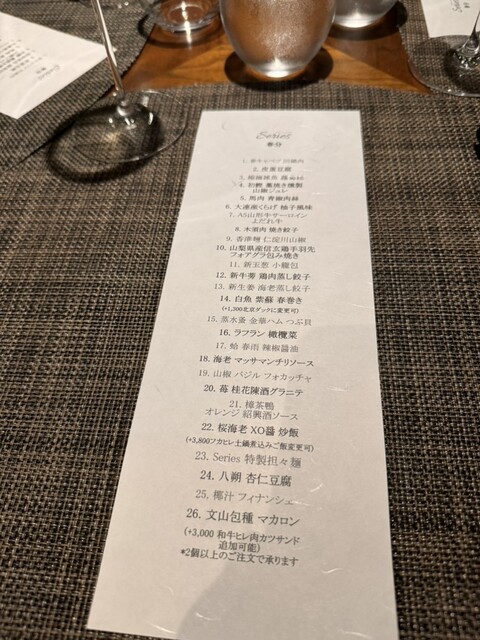 Series
春分
2. 皮蛋豆腐
4. 初鰹 藁焼き燻製
山椒ジュレ
5. 馬肉 青椒肉絲
6. 大連産くらげ 柚子風味
7. A5山形牛サーロイン
よだれ牛
8. 木須肉 焼き餃子
9. 香港種 仁淀川山椒
10. 山梨県産信玄鶏手羽先
フォアグラ包み焼き
11. 新玉葱 小籠包
12. 新牛蒡 鶏肉蒸し餃子
13. 新生姜 海老蒸し餃子
14. 白魚 紫蘇 春巻き
(+1,300北京ダックに変更可)
15. 蒸水蛋 金華ハム つぶ貝
16. ラフラン 橄欖菜
17. 蛤 春雨 辣椒醤油
18. 海老 マッサマンチリソース
19. 山椒 バジル フォカッチャ
20. 苺 桂花陳酒グラニテ
21. 樟茶鴨
オレンジ 紹興酒ソース
22. 桜海老 XO醤 炒飯
(+3,800フカヒレ土鍋煮込みご飯変更可)
23. Series 特製担々麺
24. 八朔 杏仁豆腐
25. 椰汁 フィナンシェ
26. 文山包種 マカロン
(+3,000 和牛ヒレ肉カツサンド
追加可能)
*2個以上のご注文で承ります